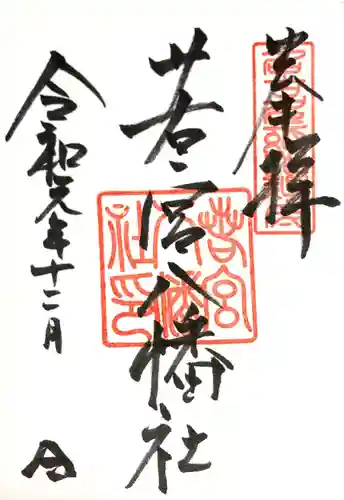 奉拝
若宮八幡社
若宮八幡社印
令和元年十二月